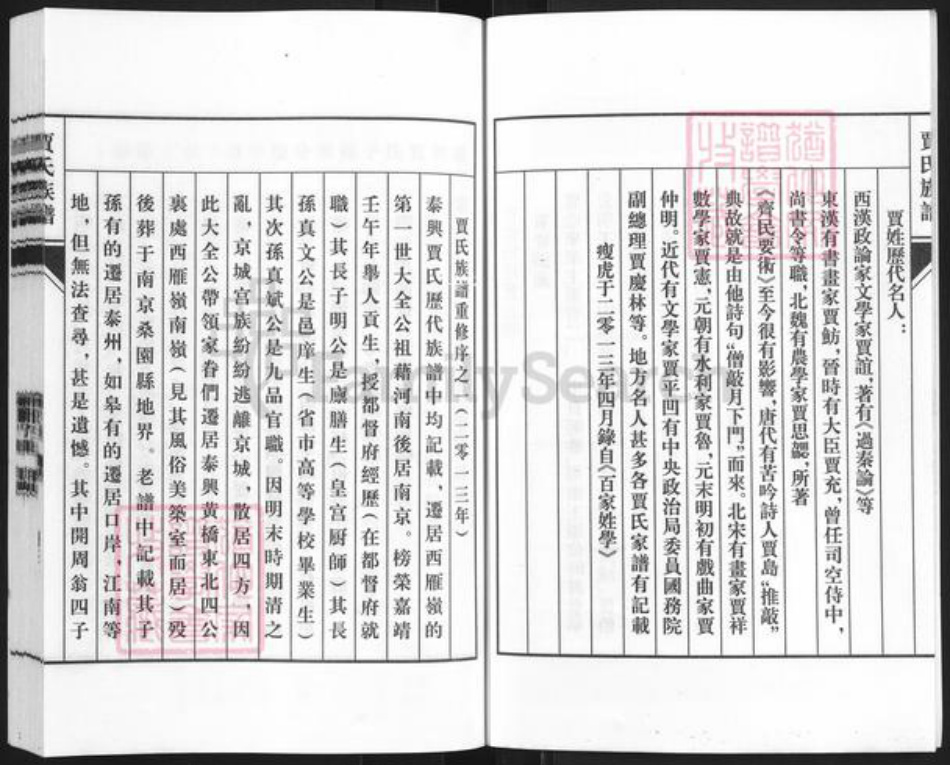 賈氏族譜
賈姓歷代名人：
西漢政論家文學家賈誼，著有《過秦論》等
東漢有書畫家賈魴，晉時有大臣賈充，曾任司空侍中，
尚書令等職，北魏有農學家賈思勰，所著
《齊民要術》至今很有影響，唐代有苦吟詩人賈島“推敲”
典故就是由他詩句“僧敲月下門”而來。北宋有畫家賈祥
數學家賈憲，元朝有水利家賈魯，元末明初有戲曲家賈
仲明。近代有文學家賈平凹有中央政治局委員國務院
副總理賈慶林等。地方名人甚多各賈氏家譜有記載
瘦虎于二零一三年四月錄自《百家姓學》
賈氏族譜重修序之一（二零一三年）
泰興賈氏歷代族譜中均記載，遷居西雁嶺的
第一世大全公祖藉河南後居南京。榜榮嘉靖
壬午年舉人貢生，授都督府經歷（在都督府就
職）其長子明公是廩膳生（皇宮厨師）其長
孫真文公是邑庠生（省市高等學校畢業生）
其次孫真斌公是九品官職。因明末時期清之
亂，京城宮族紛紛逃離京城，散居四方，因
此大全公帶領家眷們遷居泰興黃橋東北四公
裏處西雁嶺南嶺（見其風俗美築室而居）殁
後葬于南京桑園縣地界。老譜中記載其子
孫有的遷居泰州，如皋有的遷居口岸，江南等
地，但無法查尋，甚是遺憾。其中開周翁四子
賈氏族譜
FamilySearch